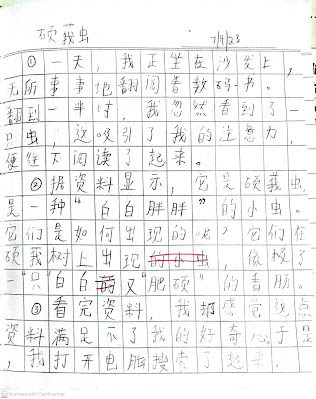 硕莪虫
7/9/23
① 一天，我正坐在沙发上，
无所事事地翻阅着数码书。
翻到一半时，我忽然看到了一
只虫，这吸引了我的注意力，
便往下阅读了起来。
② 据资料显示，它是硕莪虫，
是一种“白白胖胖”的小虫。
它们是如何出现的呢？它们在
硕莪树上出现，像极了
一“只”白白又“肥硕”的香肠。
③ 看完资料，我却感觉这点
资料满足不了我的好奇心。于是
，我打开电脑搜索了起来，
Scanned with CamScanner